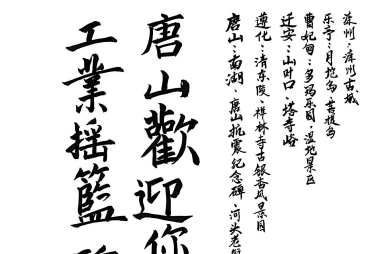 滦州:滦州古城
乐亭:月坨岛 菩提岛
曹妃甸:多玛乐园·湿地景区
迁安:山叶口·塔寺峪
遵化:清东陵·禅林寺古银杏风景园
唐山:南湖·唐山抗震纪念碑·河头老
唐山歡迎你
工業摇籃